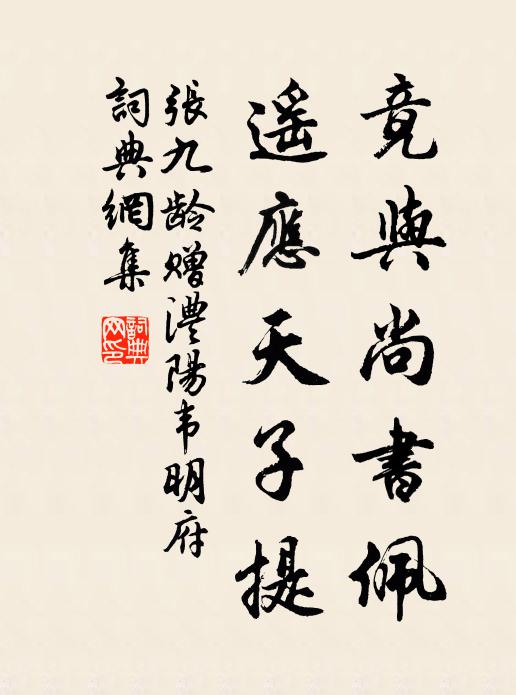 竟與尚書佩
遥應天子提
張九龄赠澧陽韦明府
詞典網集
詞典网印